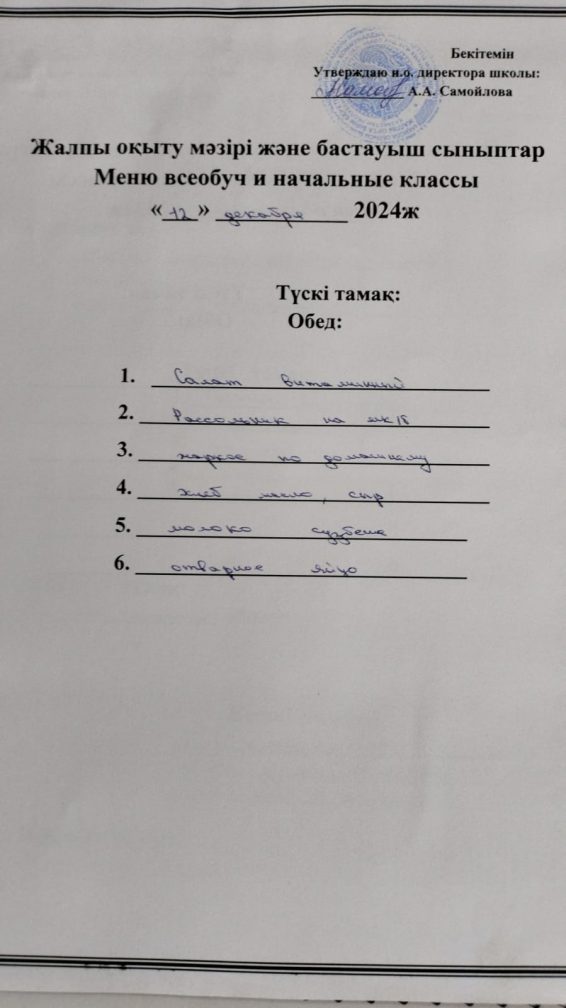 Бекітемін
Утверждаю и.о. директора школы:
А.А. Самойлова
Жалпы оқыту мәзірі және бастауыш сыныптар
Меню всеобуч и начальные классы
«12» декабря 2024ж
Түскі тамақ:
Обед:
1. Салат витаминный
2. Рассольник на мк/б
3. жаркое по домашнему
4. хлеб масло, сыр
5. молоко сузбеше
6. отварное яйцо